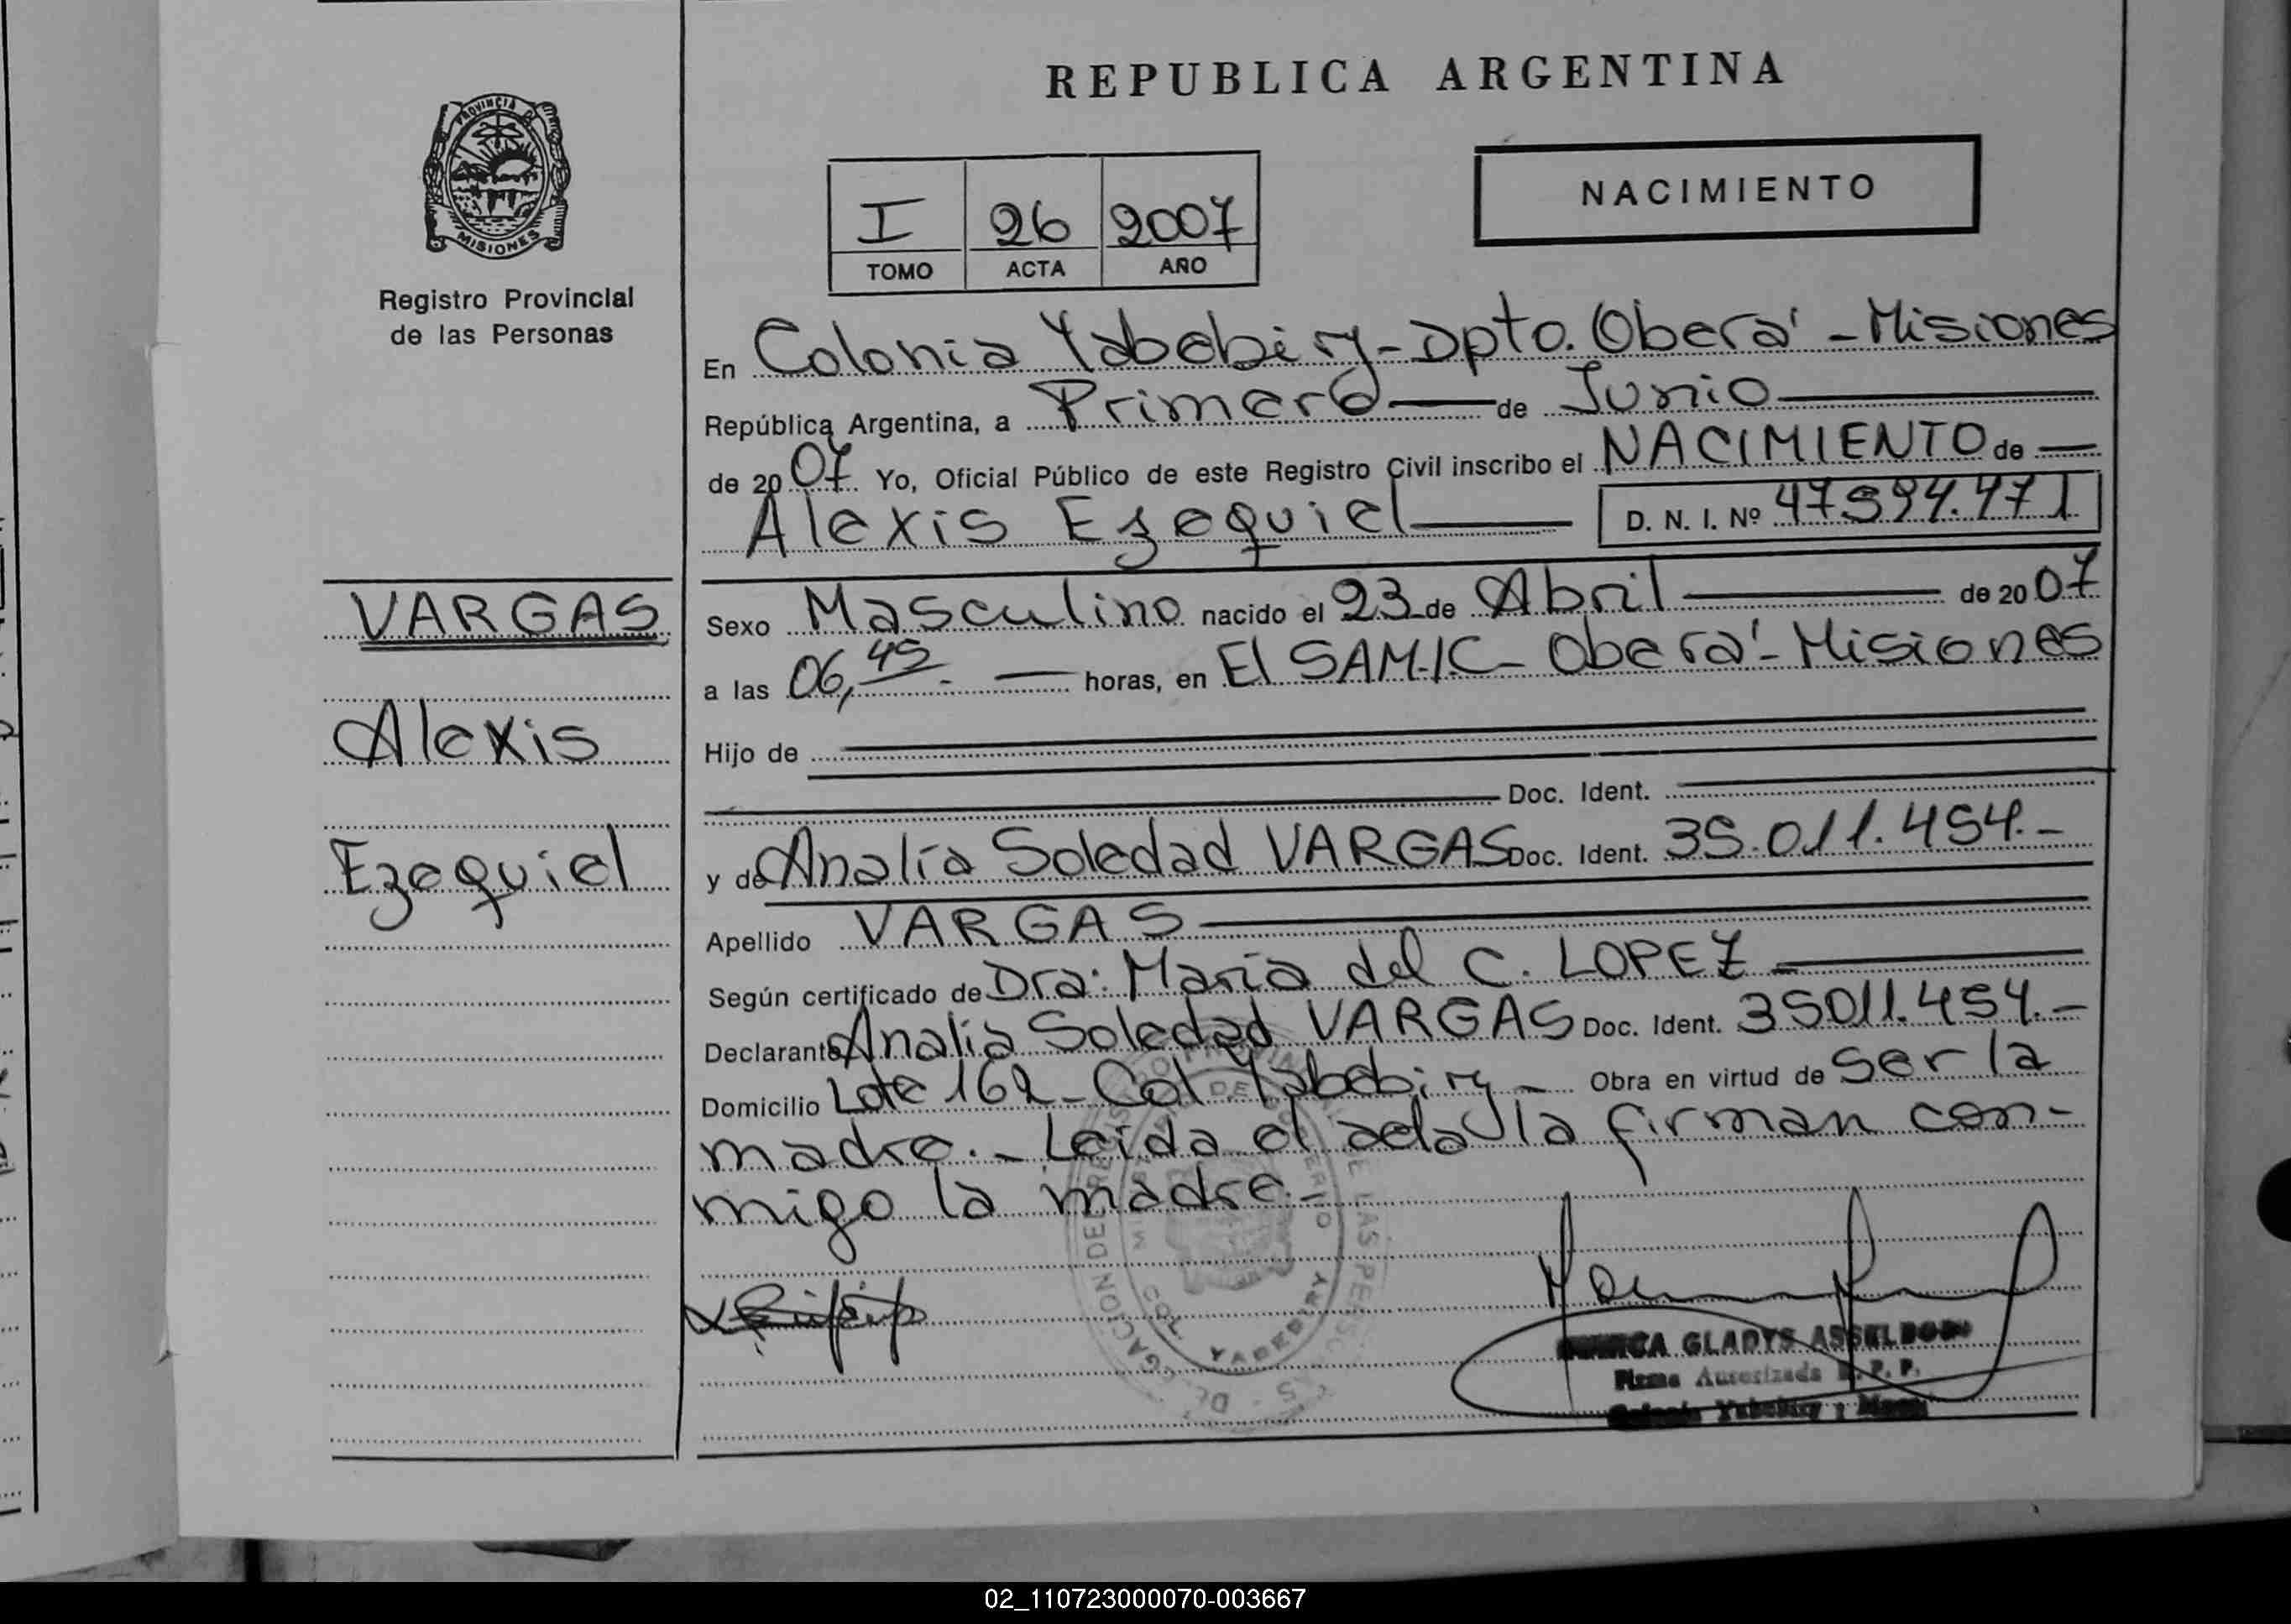 REPUBLICA ARGENTINA
PROVINCIA DE
MISIONES
Registro Provincial
de las Personas
NACIMIENTO
I 26 2007
TOMO ACTA AÑO
En Colonia Yabebiry - Dpto. Oberá - Misiones
República Argentina, a Primero de Junio
de 2007 Yo, Oficial Público de este Registro Civil inscribo el NACIMIENTO de
Alexis Ezequiel D. N. I. Nº
VARGAS
Alexis
Ezequiel
Sexo Masculino nacido el 23 de Abril de 2007
a las 06,45. horas, en El SAM.I.C - Oberá - Misiones
Hijo de
Doc. Ident.
y de Analía Soledad VARGAS Doc. Ident. 35.011.454.-
Apellido VARGAS
Según certificado de Dra: María del C. LOPEZ
Declarante Analia Soledad VARGAS Doc. Ident. 35011.454.-
Domicilio Lote 162 - Col Yabebiry - Obra en virtud de ser la
madre. - Leida el acta la firman con-
migo la madre. -
GLADYS
Firma Autorizada R. P. P.
02_110723000070-003667